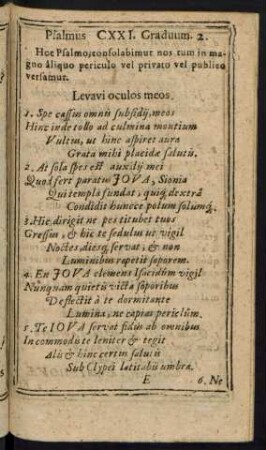 Psalmus CXXI. Graduum. 2.
Hoc Psalmo, consolabimur nos tum in ma-
gno aliquo periculo vel privato vel publico
versamur.
Levavi oculos meos.
1. Spe cassus omnis subsidij, meos
Hinc inde tollo ad culmina montium
Vultus, ut hinc aspiret aura
Grata mihi placidæ salutis.
2. At sola spes est auxilij mei
Quod fert paratus JOVA, Sionia
Qui templa fundat, quiq; dextrâ
Condidit hunc ce polum solumq́.
3. Hic dirigit ne pes titubet tuos
Gressus, & hic te sedulus ut vigil
Noctes, diesq; servat, & non
Luminibus rapit soporem.
4. En JOVA clemens Isacidûm vigil
Nunquam quietis victa soporibus
Deflectit à te dormitante
Lumina, ne capias periclûm.
5. Te IOVA servat fidus ab omnibus
Incommodis te leniter & tegit
Alis & hinc certus salutis
Sub Clypei latitabis umbra.
E 6. Ne